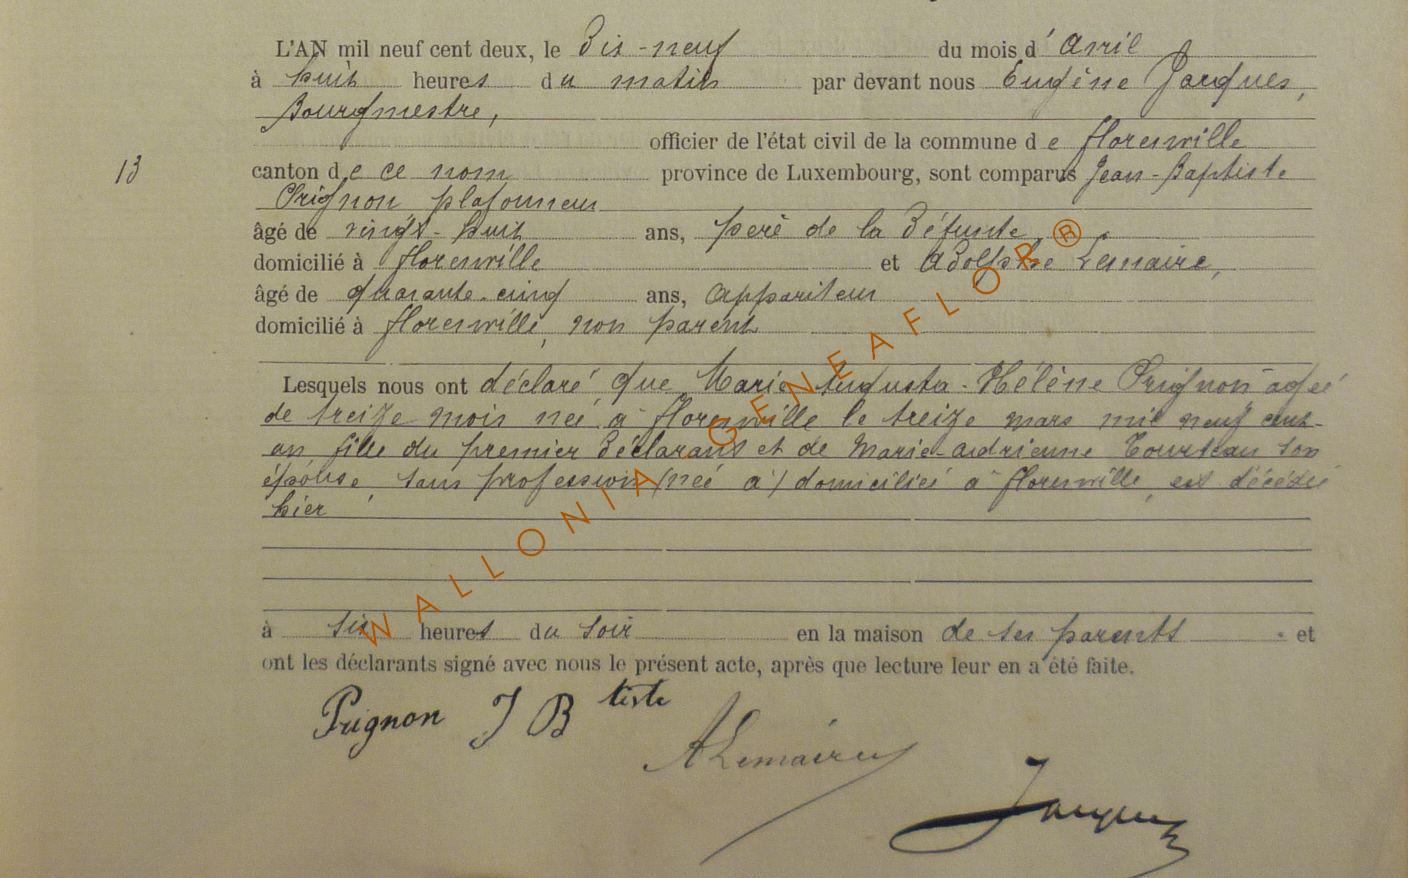 L'AN mil neuf cent deux, le Dix-neuf du mois d'Avril
à huit heures du matin par devant nous Eugène Jacques,
Bourgmestre,
officier de l'état civil de la commune de Florenville
13
canton de ce nom province de Luxembourg, sont comparus Jean-Baptiste
Prignon plafonneur
âgé de vingt-huit ans, père de la Défunte
domicilié à Florenville et Adolphe Lemaire,
âgé de quarante-cinq ans, Appariteur
domicilié à Florenville, non parent
Lesquels nous ont déclaré que Marie Augusta-Hélène Prignon agée
de treize mois née à Florenville le treize mars mil neuf cent-
un fille du premier Déclarant et de Marie-Adrienne son
épouse, sans profession (née à) domiciliée à Florenville, est décédée
hier
à six heures du soir en la maison de ses parents et
ont les déclarants signé avec nous le présent acte, après que lecture leur en a été faite.
Prignon J Btiste
ALemaire
Jacques
WALLONIA GENEAFLOR ®